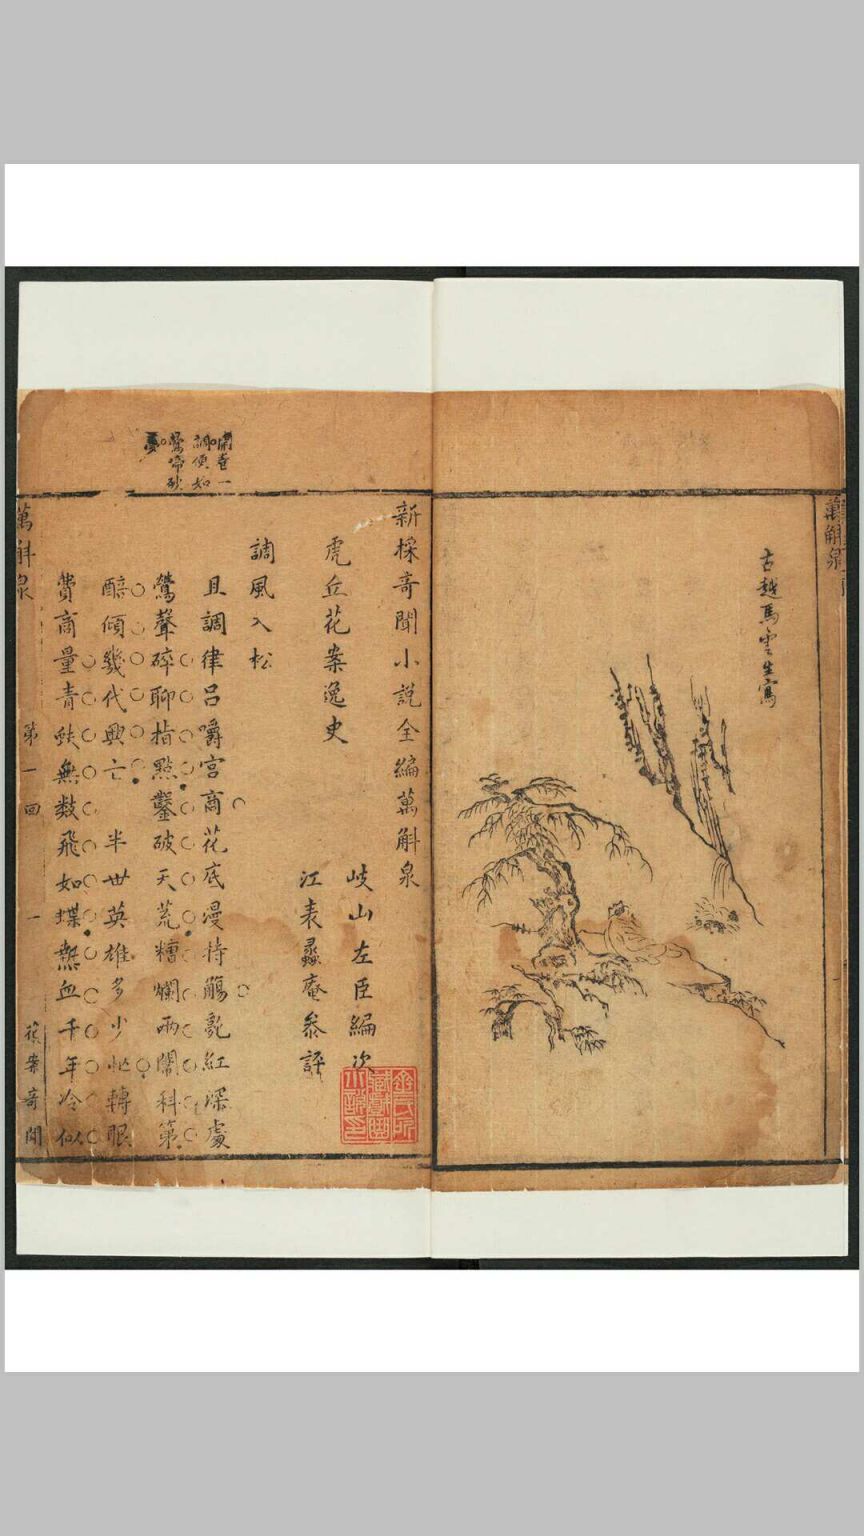 萬斛泉
古越馬雲生寫
新採奇聞小說全編萬斛泉
虎丘花案逸史
岐山左臣編次
江表蠡庵參評
調風入松
且調律呂嚼宮商花底漫持觴亂紅深處
鶯聲碎聊指點鑿破天荒糟爛兩闈科第
醅傾幾代興亡 半世英雄多少忙轉眼
費商量青蚨無數飛如蝶熱血千年冷似
開卷一
調便如
鶯啼砂
萬斛泉 第一回 一 花案奇聞